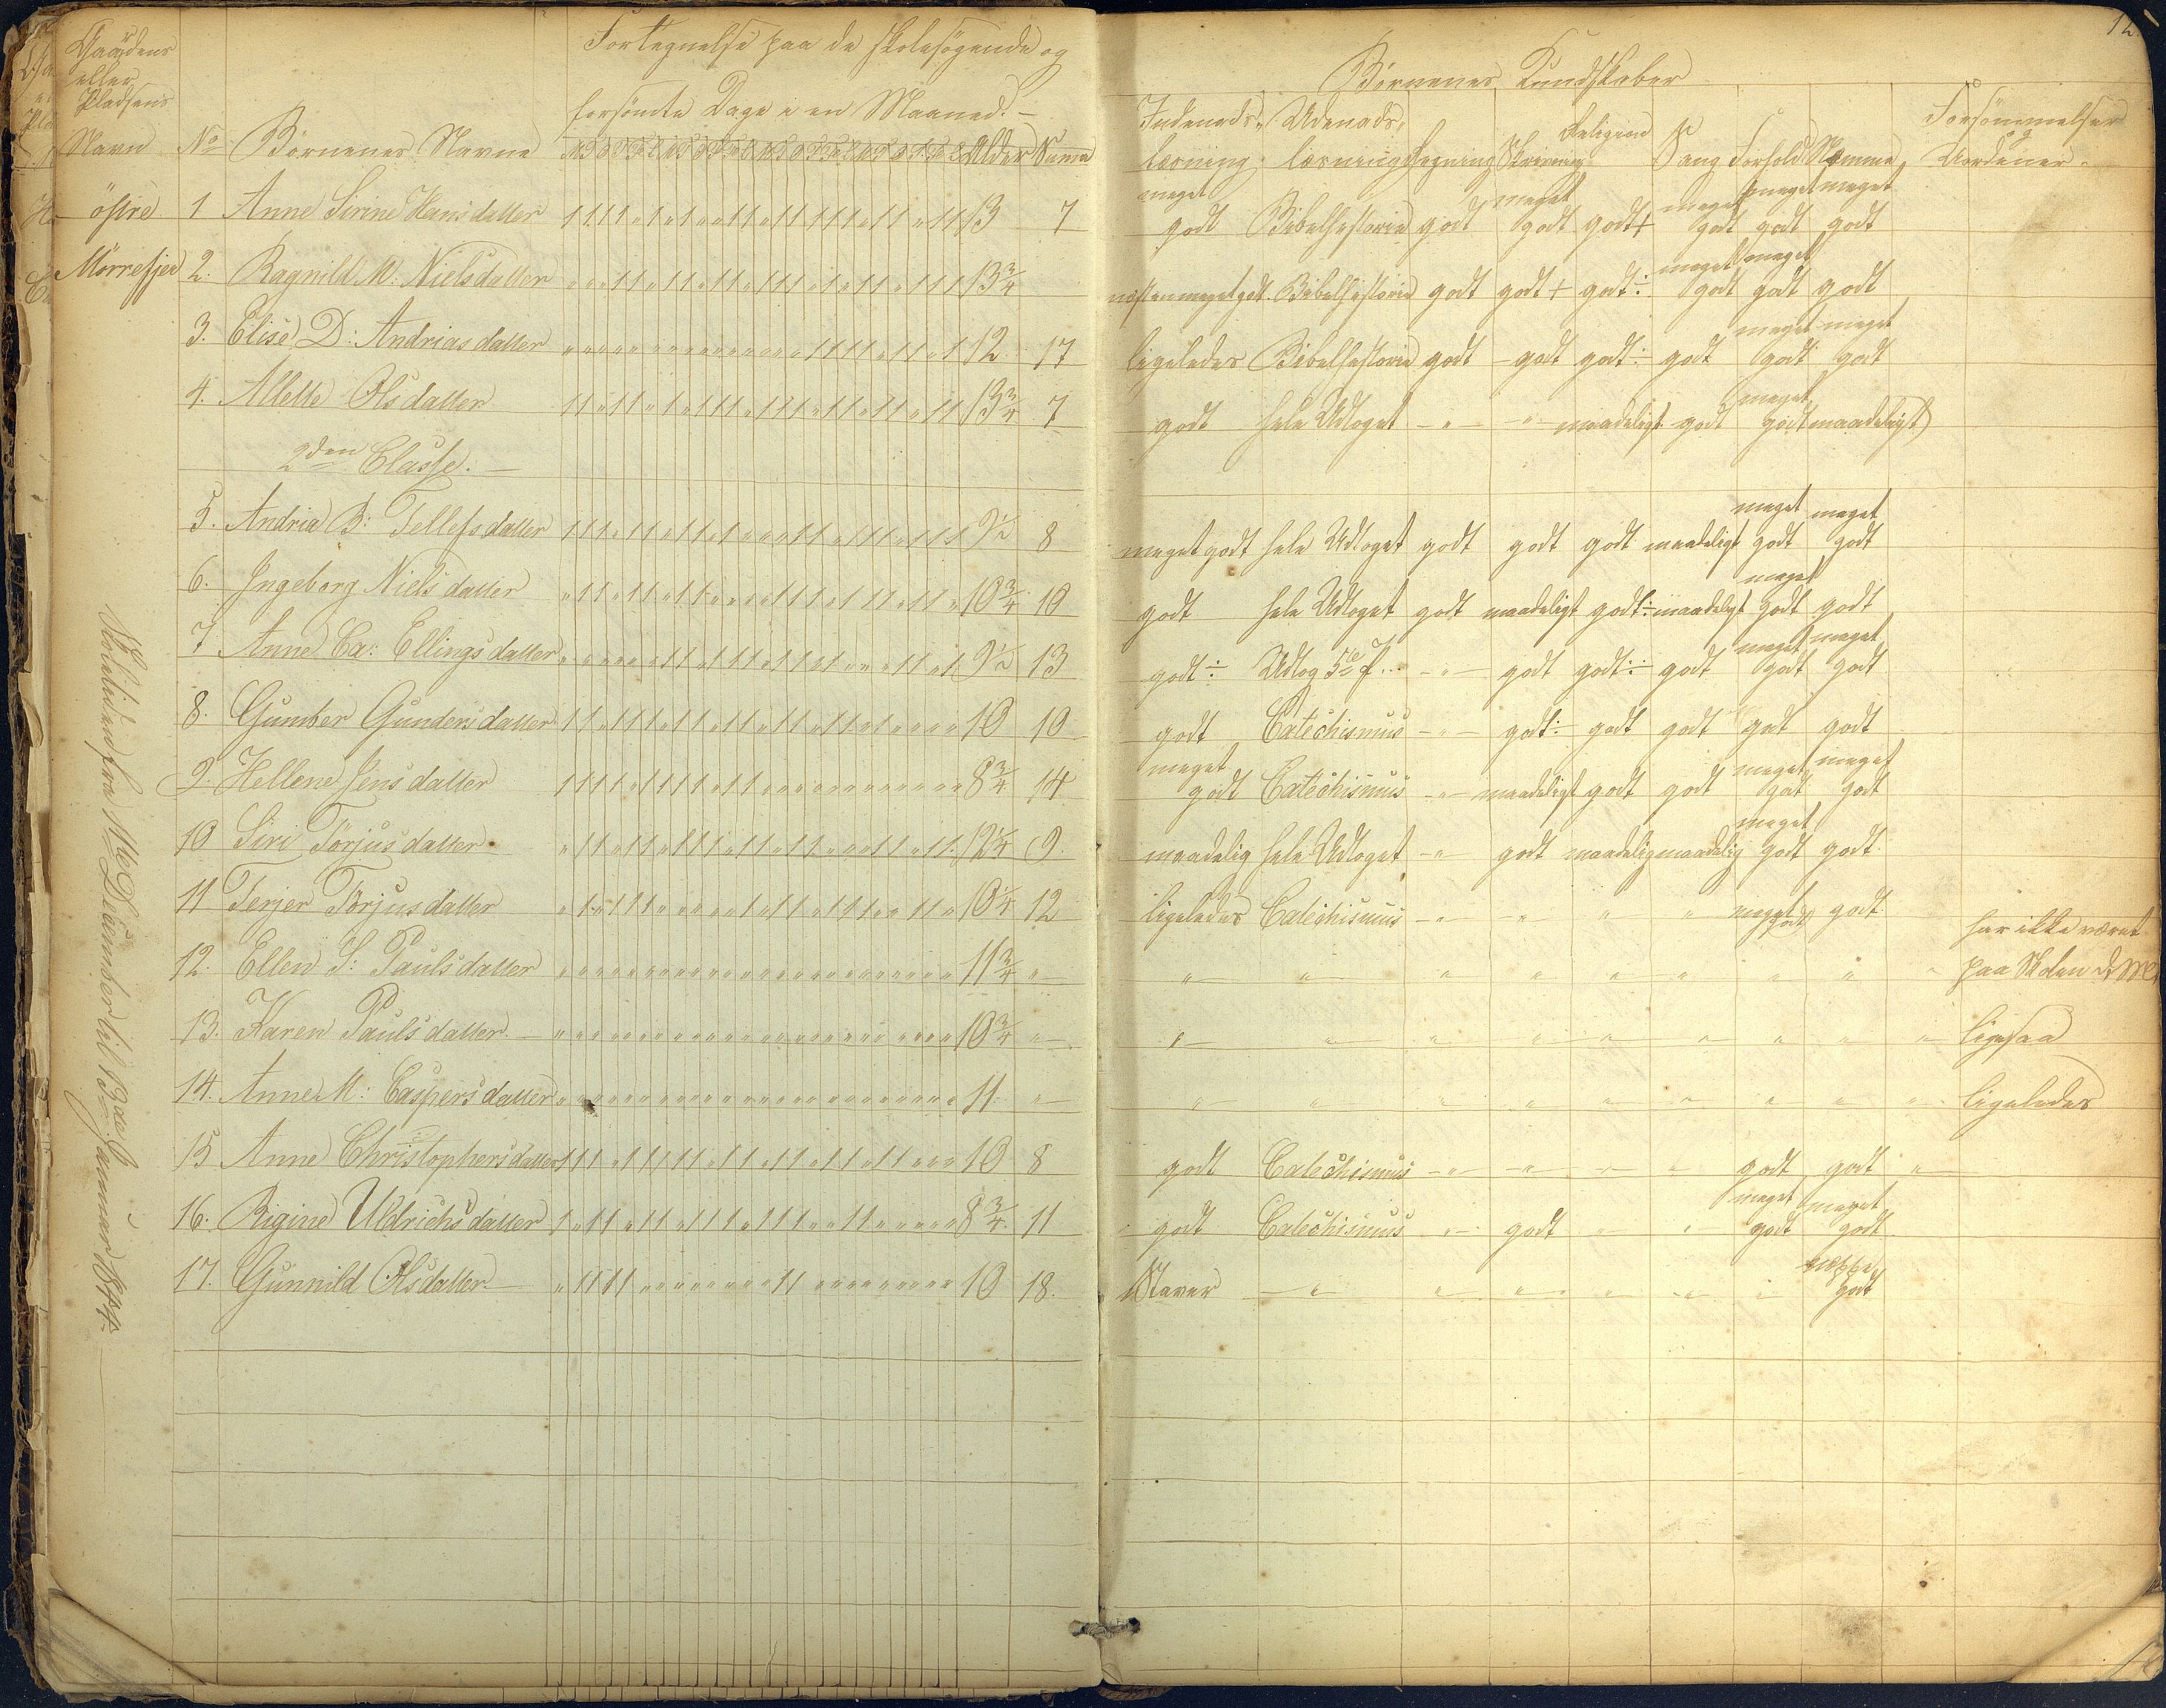 Gaardens
eller
Pladsens
Navn
Fortegnelse paa de skolesøgende og
forsömte Dage i en Maaned. –
No Börnenes Navne Alder Suma
östre 1 Anne Sirine Hansdatter 13 7
Mörrefjer 2. Ragnild M: Nielsdatter 13¾
3. Elise D: Andriasdatter 12 17
4. Allette Olsdatter 13¾ 7
2den Classe. –
5. Andria B: Tellefsdatter 9½ 8
6. Ingeborg Nielsdatter 10¾ 10
7 Anne Ca: Ellingsdatter 9½ 13
8. Gumber Gundersdatter 10 10
9. Hellene Jensdatter 8¾ 14
10 Siri Törjusdatter 12¼ 9
11 Terjer Törjusdatter 10¼ 12
12. Ellen S: Paulsdatter 11¾ "
13. Karen Paulsdatter. 10¾ "
14. Anne M: Caspersdatter 11 "
15 Anne Christophersdatter 10 8
16. Rigine Uldrichsdatter 8¾ 11
17. Gunnild Olsdatter 10 18.
Holdt fra December til 13de Januar 1844.
12
Börnenes Kundskaber
Indenads- læsning Udenads- læsning Regning Skrivning Religion Sang Forhold Nemme Forsömmelser og Uordener.
meget godt Bibelhistorie godt meget godt godt+ meget godt meget godt meget godt
næsten meget godt. Bibelhistorie godt godt+ godt÷ meget godt meget godt godt
ligeledes Bibelhistorie godt godt godt÷ godt meget godt meget godt
godt hele Udtoget " " maadeligt godt meget godt maadeligt
meget godt hele Udtoget godt godt godt maadeligt meget godt meget godt
godt hele Udtoget godt maadeligt godt÷ maadeligt meget godt godt
godt÷ Udtog 5te " godt godt÷ godt meget godt meget godt
godt Catechismus " godt÷ godt godt godt godt
meget godt Catechismus " maadeligt godt godt meget godt meget godt
maadelig hele Udtoget " godt maadelig maadelig meget godt godt
ligeledes Catechismus " " " " meget godt godt
" " " " " " " " " har ikke været paa Skolen d. M.
" " " " " " " " " ligesaa
" " " " " " " " " ligeledes
godt Catechismus " " " " godt godt "
godt Catechismus " godt " " meget godt meget godt
Staver " " " " " " neppe godt